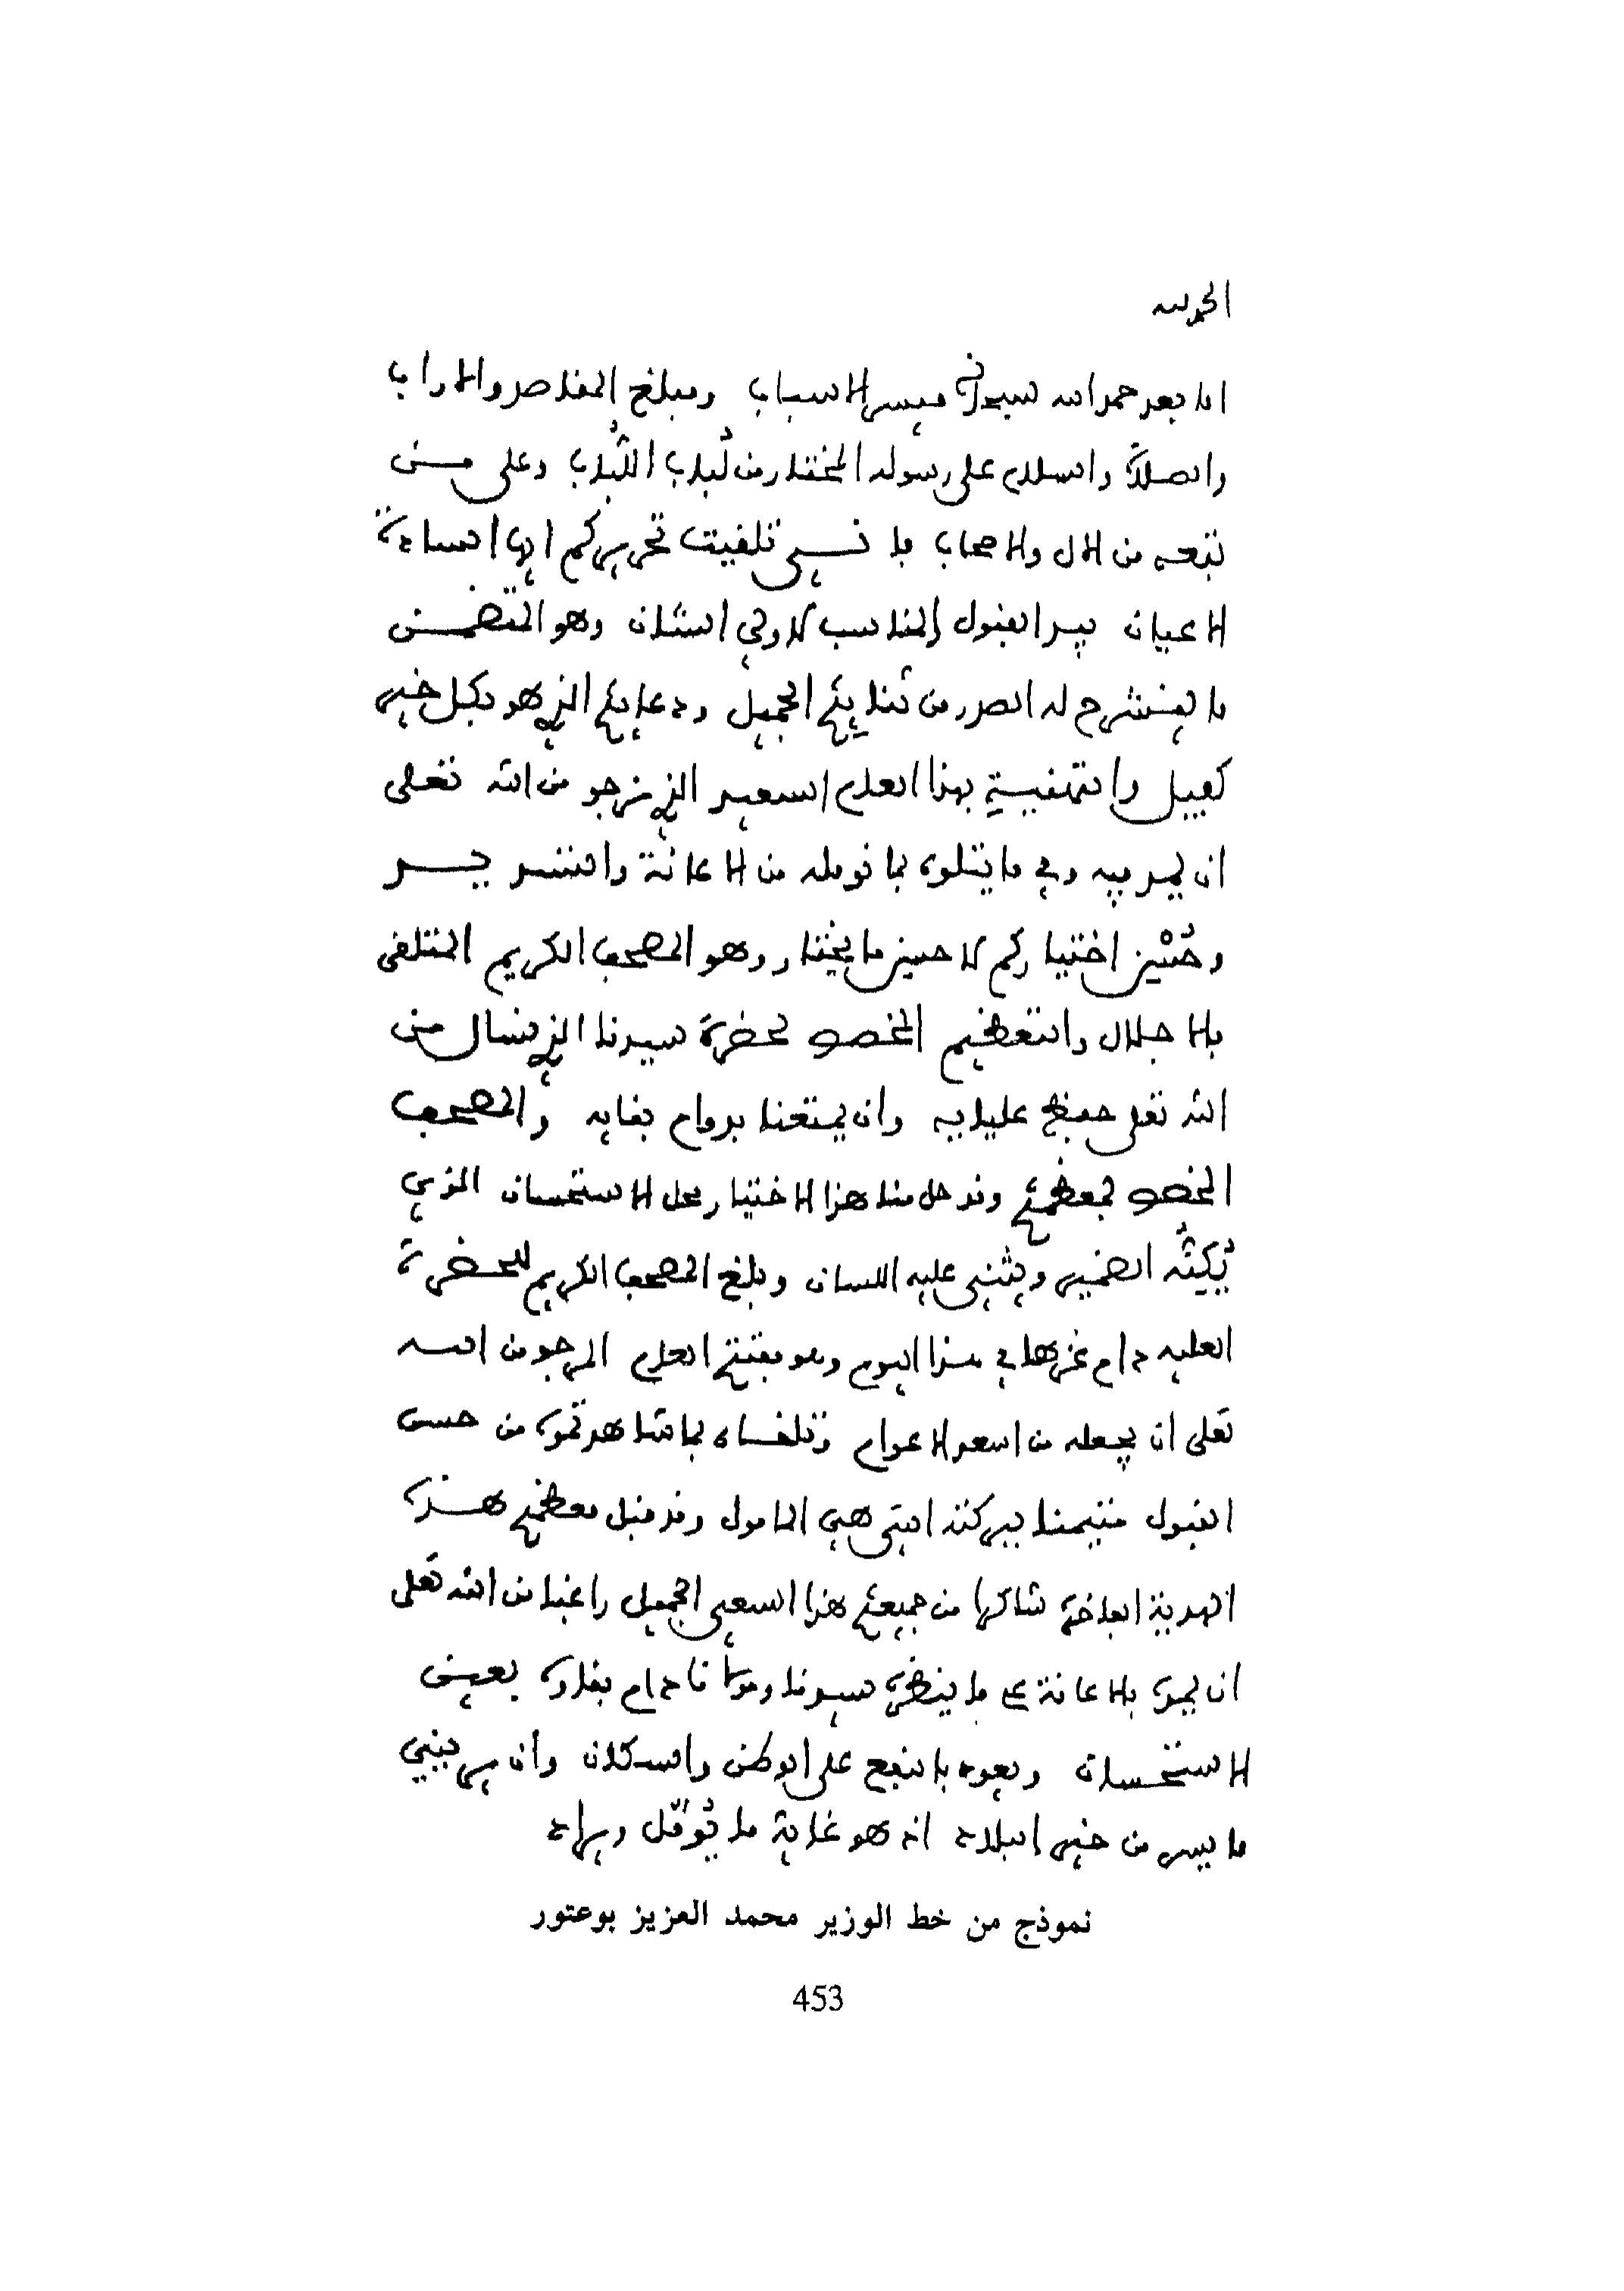 الحمد لله
اما بعد حمد الله سبحانه ميسر الاسباب ومبلغ المقاصد والاراب
والصلاة والسلام على رسوله المختار من لُباب اللُّباب وعلى مــن
تبعه من الال والاصحاب فانــي تلقيت تحريركم ايها السادة
الاعيان بيد القبول المناسب لاولي الشان وهو المتضمــن
ما ينشرح له الصدر من ثنايكم الجميل ودعايكم الذي هو بكل خير
كفيل والتهنية بهذا العام السعيد الذي نرجو من الله تعلى
ان يمد فيه وفي ما يتلوه بما نومله من الاعانة والتسديــد
وحُسْن اختياركم لاحسن ما يختار وهو المصحف الكريم المتلقى
بالاجلال والتعظيم المخصوص لحضرة سيدنا الذي نسال من
الله تعلى حفظ عليايه وان يمتعنا بدوام بقايه والمصحف
المخصوص بمعظمكم وقد حل منا هذا الاختيار محل الاستحسان الذي
يُكِنُّه الضمير ويثني عليه اللسان وبلغ المصحف الكريم للحضرة
العلية دام عزها في هــذا اليوم وهو مفتتح العام المرجو من اللــه
تعلى ان يجعله من اسعد الاعوام وتلقــاه بما شاهدتموه من حسن
القبول متيمنا ببركته التي هي المامول وقد قبل معظمكم هــذه
الهدية الفاخرة شاكرا من جميعكم هذا السعي الجميل راغبا من الله تعلى
ان يمده بالاعانة على ما ينظره سيدنا ومولانا دام بقاوه بعين
الاستحسان ويعود بالنفع على الوطن والسكان وأن يريني
ما يسر من خير البلاد اذ هو غاية ما يُؤمَّل ويراد
نموذج من خط الوزير محمد العزيز بوعتور
453